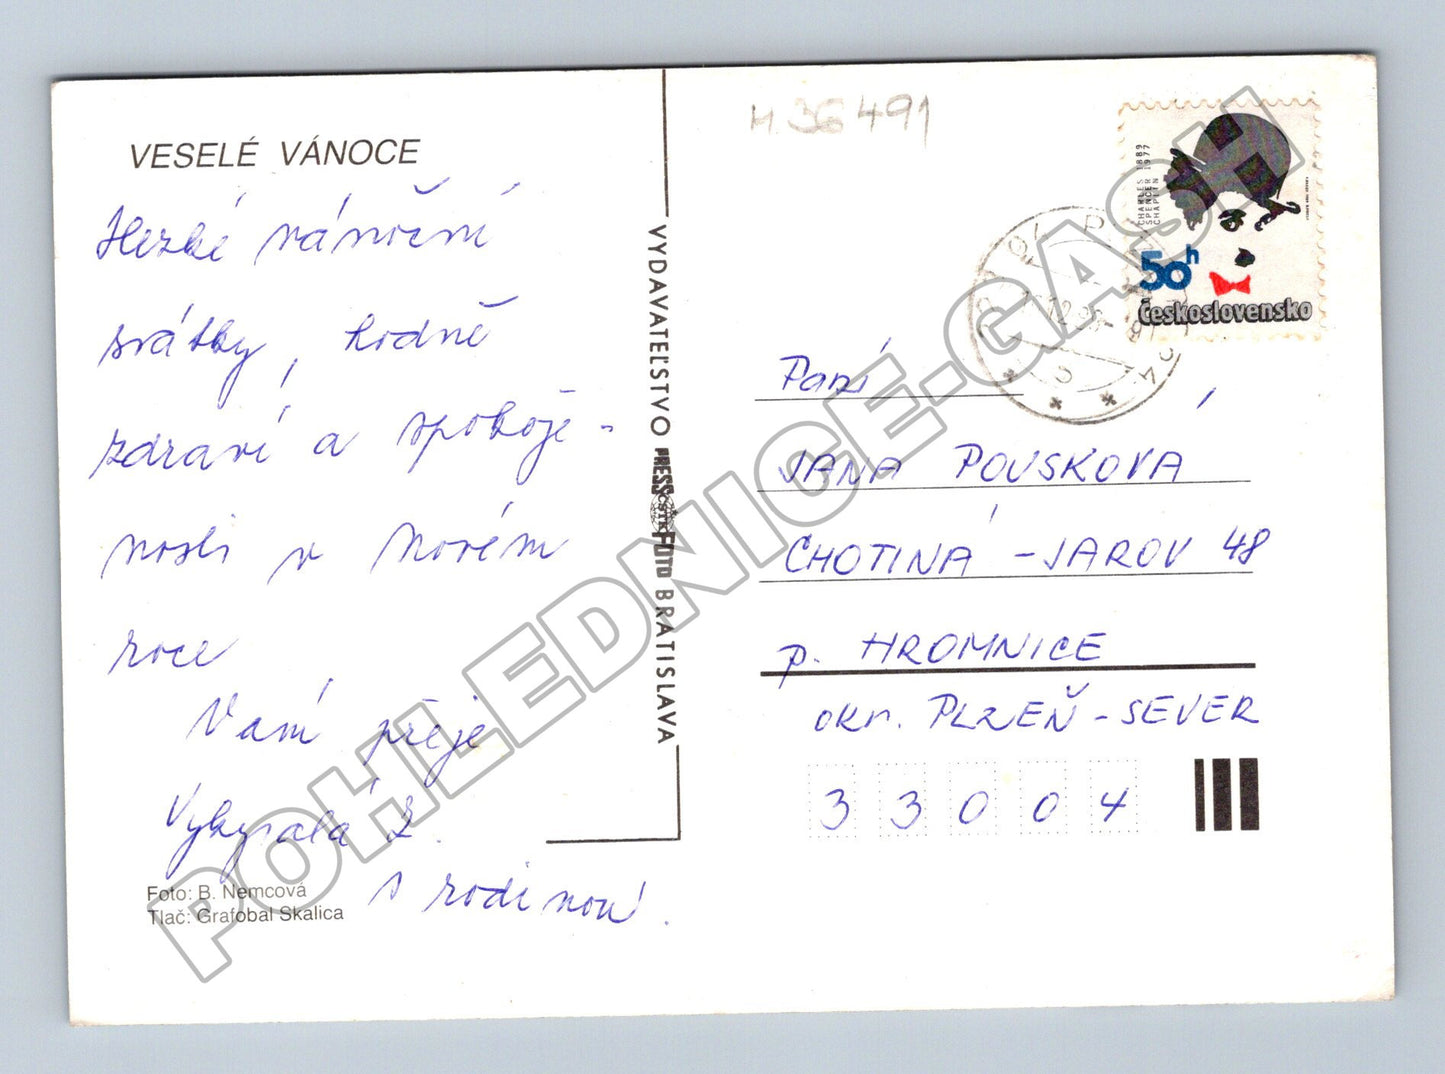 VESELÉ VÁNOCE
Hezké vánoční
svátky, hodně
zdraví a spokoje-
nosti v novém
roce
Vám přeje
Vykypalá Z.
s rodinou.
Foto: B. Nemcová
Tlač: Grafobal Skalica
VYDAVATEĽSTVO PRESSFOTO BRATISLAVA
ČSTK
H 36491
CHARLES 1889
SPENCER 1977
CHAPLIN
50h
Československo
Paní
JANA POUSKOVÁ
CHOTINÁ - JAROV 48
p. HROMNICE
okr. PLZEŇ - SEVER
33004
POHLEDNICE-GASH